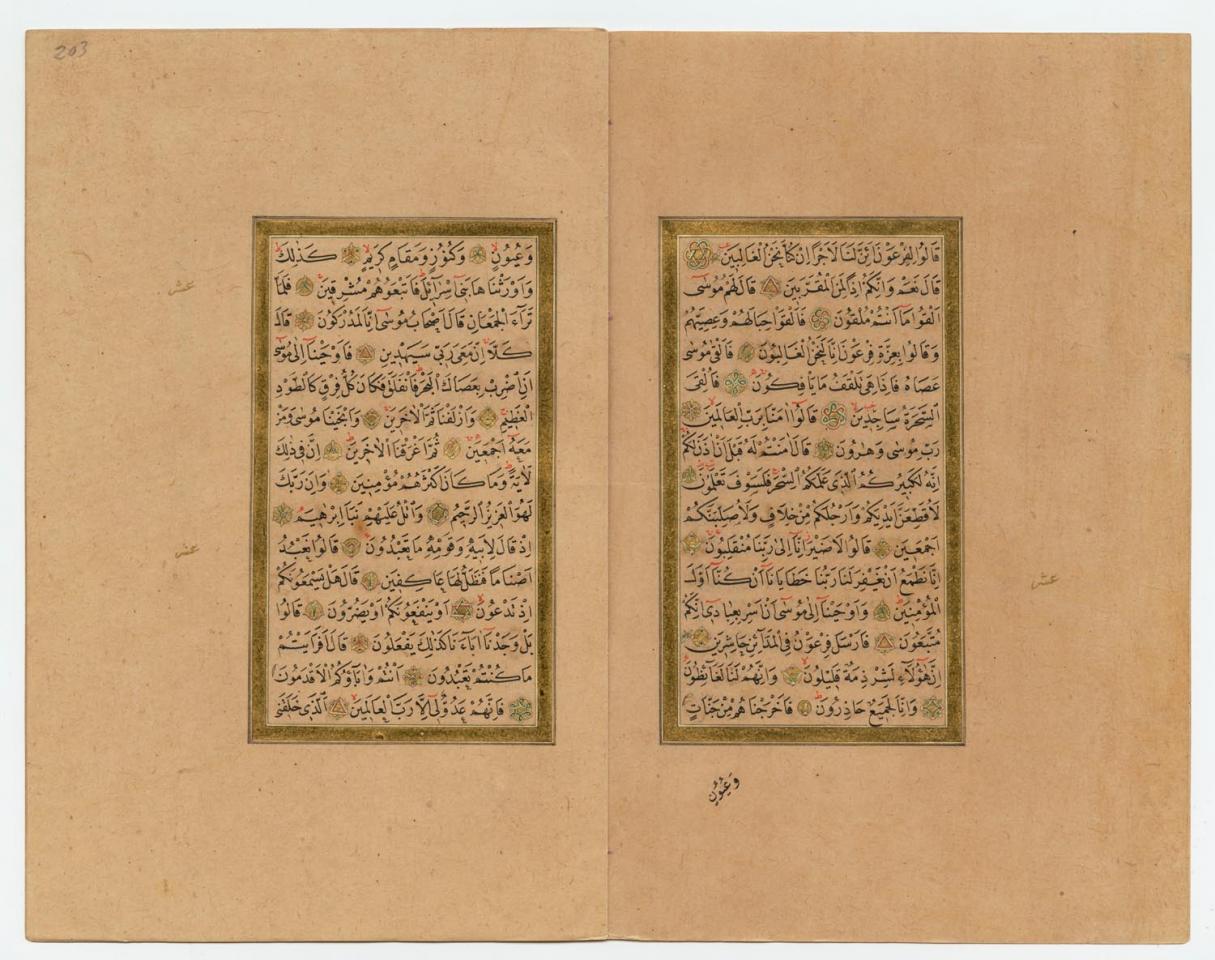 قَالُوا لِفِرْعَوْنَ اَئِنَّ لَنَا لَاَجْرًا اِنْ كُنَّا نَحْنُ الْغَالِبِينَ
قَالَ نَعَمْ وَاِنَّكُمْ اِذًا لَمِنَ الْمُقَرَّبِينَ قَالَ لَهُمْ مُوسٰى
اَلْقُوا مَا اَنْتُمْ مُلْقُونَ فَاَلْقَوْا حِبَالَهُمْ وَعِصِيَّهُمْ
وَقَالُوا بِعِزَّةِ فِرْعَوْنَ اِنَّا لَنَحْنُ الْغَالِبُونَ فَاَلْقٰى مُوسٰى
عَصَاهُ فَاِذَا هِىَ تَلْقَفُ مَا يَاْفِكُونَ فَاُلْقِىَ
السَّحَرَةُ سَاجِدِينَ قَالُوا اٰمَنَّا بِرَبِّ الْعَالَمِينَ
رَبِّ مُوسٰى وَهٰرُونَ قَالَ اٰمَنْتُمْ لَهُ قَبْلَ اَنْ اٰذَنَ لَكُمْ
اِنَّهُ لَكَبِيرُكُمُ الَّذِى عَلَّمَكُمُ السِّحْرَ فَلَسَوْفَ تَعْلَمُونَ
لَاُقَطِّعَنَّ اَيْدِيَكُمْ وَاَرْجُلَكُمْ مِنْ خِلَافٍ وَلَاُصَلِّبَنَّكُمْ
اَجْمَعِينَ قَالُوا لَا ضَيْرَ اِنَّا اِلٰى رَبِّنَا مُنْقَلِبُونَ
اِنَّا نَطْمَعُ اَنْ يَغْفِرَ لَنَا رَبُّنَا خَطَايَانَا اَنْ كُنَّا اَوَّلَ
الْمُؤْمِنِينَ وَاَوْحَيْنَا اِلٰى مُوسٰى اَنْ اَسْرِ بِعِبَادِى اِنَّكُمْ
مُتَّبَعُونَ فَاَرْسَلَ فِرْعَوْنُ فِى الْمَدَائِنِ حَاشِرِينَ
اِنَّ هٰؤُلَاءِ لَشِرْذِمَةٌ قَلِيلُونَ وَاِنَّهُمْ لَنَا لَغَائِظُونَ
وَاِنَّا لَجَمِيعٌ حَاذِرُونَ فَاَخْرَجْنَاهُمْ مِنْ جَنَّاتٍ
وَعُيُونٍ
عشر
203
وَعُيُونٍ وَكُنُوزٍ وَمَقَامٍ كَرِيمٍ كَذٰلِكَ
وَاَوْرَثْنَاهَا بَنِى اِسْرَائِلَ فَاَتْبَعُوهُمْ مُشْرِقِينَ فَلَمَّا
تَرَاءَ الْجَمْعَانِ قَالَ اَصْحَابُ مُوسٰى اِنَّا لَمُدْرَكُونَ قَالَ
كَلَّا اِنَّ مَعِىَ رَبِّى سَيَهْدِينِ فَاَوْحَيْنَا اِلٰى مُوسٰى
اَنِ اضْرِبْ بِعَصَاكَ الْبَحْرَ فَانْفَلَقَ فَكَانَ كُلُّ فِرْقٍ كَالطَّوْدِ
الْعَظِيمِ وَاَزْلَفْنَا ثَمَّ الْاٰخَرِينَ وَاَنْجَيْنَا مُوسٰى وَمَنْ
مَعَهُ اَجْمَعِينَ ثُمَّ اَغْرَقْنَا الْاٰخَرِينَ اِنَّ فِى ذٰلِكَ
لَاٰيَةً وَمَا كَانَ اَكْثَرُهُمْ مُؤْمِنِينَ وَاِنَّ رَبَّكَ
لَهُوَ الْعَزِيزُ الرَّحِيمُ وَاتْلُ عَلَيْهِمْ نَبَاَ اِبْرٰهِيمَ
اِذْ قَالَ لِاَبِيهِ وَقَوْمِهِ مَا تَعْبُدُونَ قَالُوا نَعْبُدُ
اَصْنَامًا فَنَظَلُّ لَهَا عَاكِفِينَ قَالَ هَلْ يَسْمَعُونَكُمْ
اِذْ تَدْعُونَ اَوْ يَنْفَعُونَكُمْ اَوْ يَضُرُّونَ قَالُوا
بَلْ وَجَدْنَا اٰبَاءَنَا كَذٰلِكَ يَفْعَلُونَ قَالَ اَفَرَاَيْتُمْ
مَا كُنْتُمْ تَعْبُدُونَ اَنْتُمْ وَاٰبَاؤُكُمُ الْاَقْدَمُونَ
فَاِنَّهُمْ عَدُوٌّ لِى اِلَّا رَبَّ الْعَالَمِينَ اَلَّذِى خَلَقَنِى
عشر
عشر